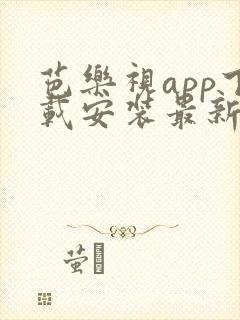 芭樂視app下
載安装最新
萤